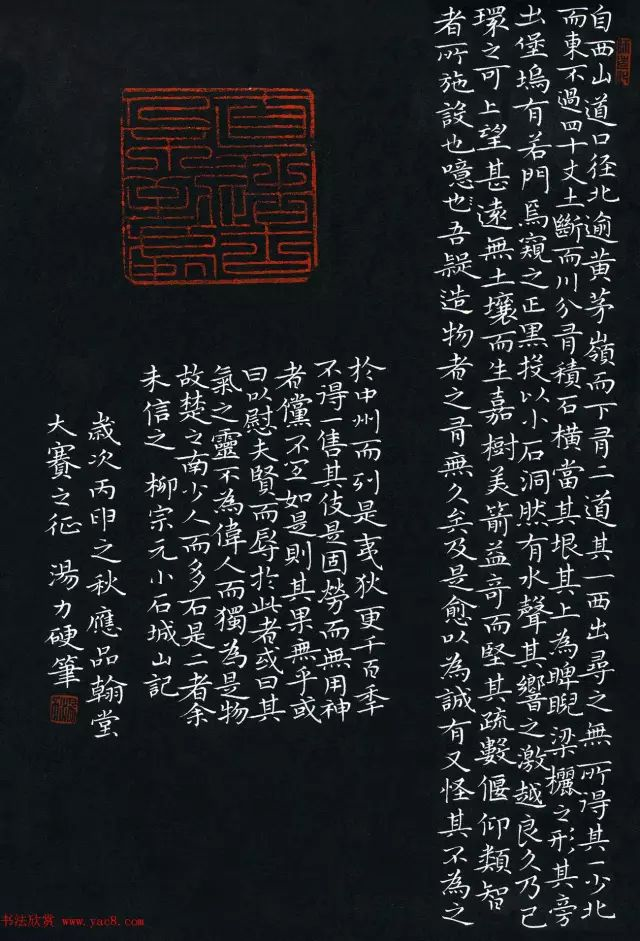 自西山道口径北逾黄茅嶺而下有二道其一西出尋之無所得其一少北
而東不過四十丈土斷而川分有積石橫當其垠其上為睥睨梁欐之形其旁
出堡塢有若門焉窺之正黑投以小石洞然有水聲其響之激越良久乃已
環之可上望甚遠無土壤而生嘉樹美箭益奇而堅其疏數偃仰類智
者所施設也噫也吾疑造物者之有無久矣及是愈以為誠有又怪其不為之
於中州而列是夷狄更千百年
不得一售其伎是固勞而無用神
者儻不宜如是則其果無乎或
曰以慰夫賢而辱於此者或曰其
氣之靈不為偉人而獨為是物
故楚之南少人而多石是二者余
未信之 柳宗元小石城山記
歲次丙申之秋應品翰堂
大賽之征 湯力硬筆
书法欣赏 www.yac8.com